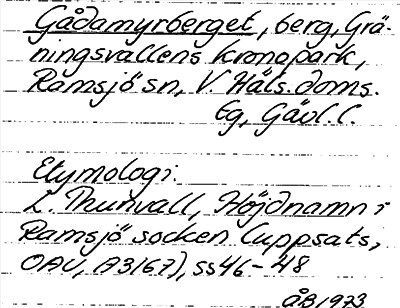 Gådamyrberget, berg, Grä-
ningsvallens kronopark,
Ramsjö sn, V. Häls. doms.
Eg, Gävl. l.
Etymologi.
L. Thunvall, Höjdnamn i
Ramsjö socken (uppsats,
OAU, A3167), ss 46-48
ÅB, 1973